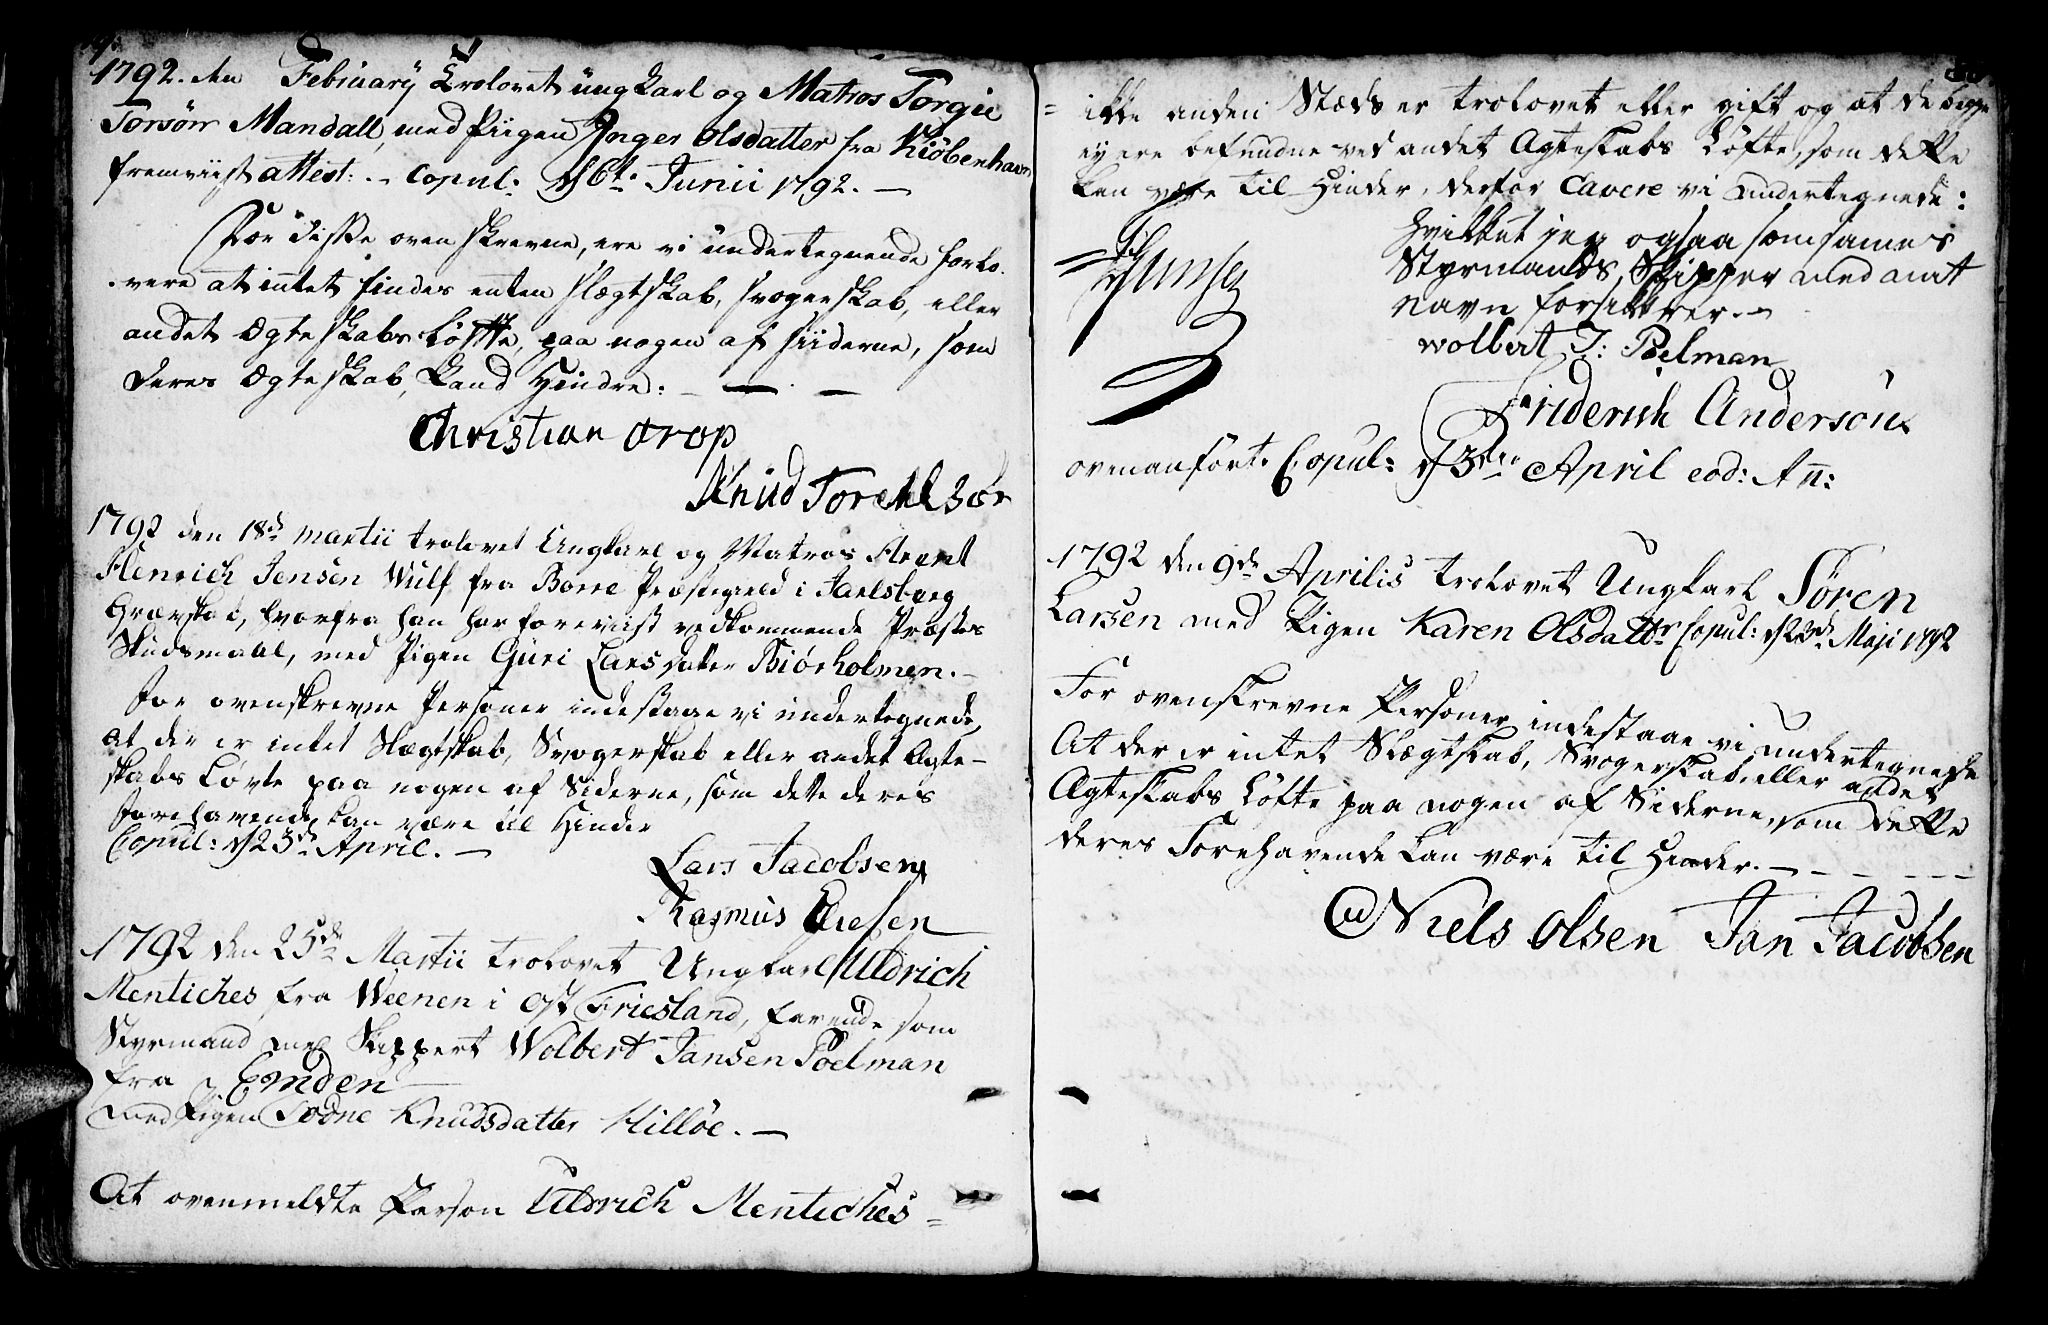 1792. den Februarÿ Trolovet ung karl og Matros Torgie
Torsön Mandall, med Piigen Inger Olsdatter fra Kiöbenhavn
fremviist attest: - Copul: d 6t. Junii 1792. -
For disse ovenskrevne, ere vi undertegnende forlo-
vere at intet findes enten slegtskab, svogerskab, eller
andet Ægteskabs Løfte, paa nogen af siiderne, som
deres Ægteskab, Kand Hindre: -
Christian orop
Knud
1792 den 18d martii trolovet Ungkarl og Matros
Henrich Jensen Wulf fra Borre Præstegield i Jarlsberg
Grævskab, hvorfra han har foreviist vedkommende Præstes
Skudsmaal, med Pigen Guri Larsdatter Biörholmen. -
for ovenskrevne Personer indestaae vi undertegnede,
at der er intet Slægtskab, Svogerskab eller andet Ægte-
skabs Løvte paa nogen af Siderne, som dette deres
forehavende kan være til Hinder
Copul: d 23d April. -
Lars Jacobsen
Rasmus
1792 den 25d Martii trolovet Ungkarl Uldrich
Mentiches fra Weenen i Ost Friesland, farende som
Styrmand med Skippert Wolbert Jansen Poelman
fra Emden
med Pigen Knudsdatter Hillöe. -
At ovenmeldte Person Uldrich Mentiches =
= ikke anden Stæds er trolovet eller gift og at de begge
ey ere befundne ved andet Ægteskabs Løfte, som dette
kan være til Hinder, derfor Cavere vi undertegnede:
hvilket jeg ogsaa som sames
Styrmands Skipper med mit
Navn forsikkrer. -
wolbert J: Poelman
Friderich Andersön
ovenanført. Copul: d 3die April eod: An:
1792 den 9de Aprilis trolovet Ungkarl Sören
Larsen med Pigen Karen Olsdattr Copul: d 23d Maji 1792
For ovenskrevne Personer indestaae vi undertegnede
At der er intet Slægtskab, Svogerskab, eller andet
Ægteskabs Løfte paa nogen af Siderne, som dette
deres Forehavende kan være til Hinder. -
Niels Olsen Jan Jacobsen